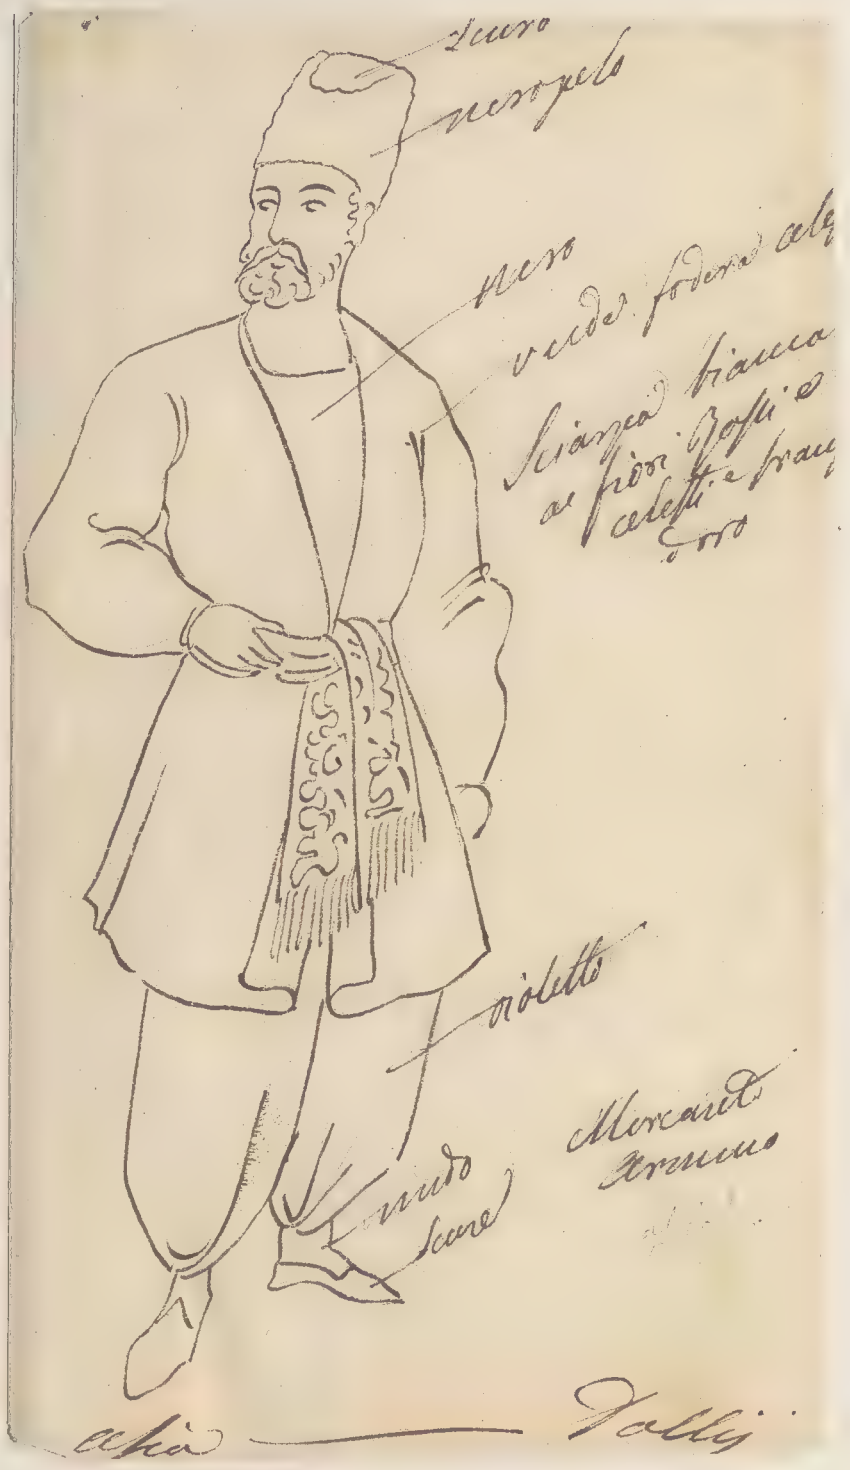 scuro
nero pelo
nero
verde fodera cele
Sciarpa bianca
a fiori Rossi e
celesti e frang
d'oro
violetto
Mercante
Armeno
nudo
scure
Asia